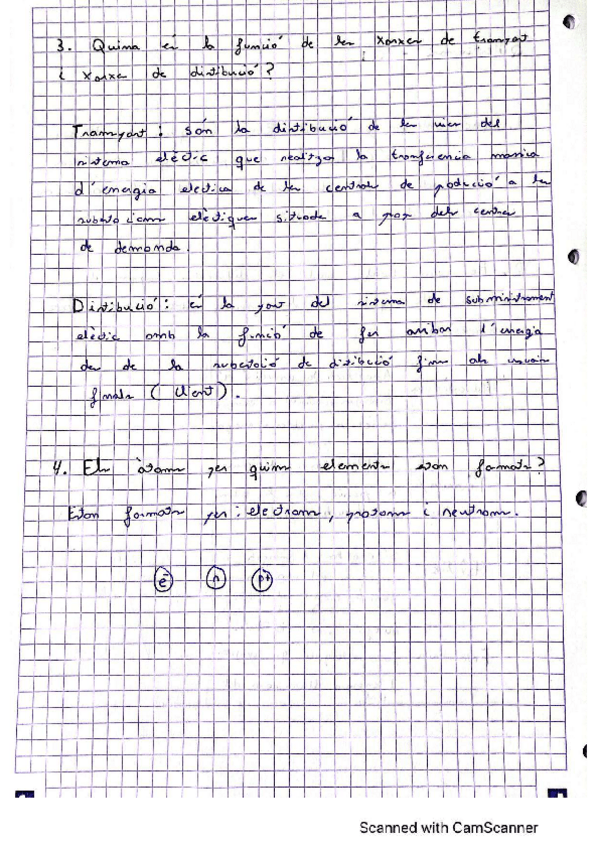 3. Quina és la funció de les xarxes de transport
i xarxa de distribució?
Transport: són la distribució de les vies del
sistema elèctic que realitza la transferencia massiva
d'energia electica de les centrals de producció a les
subestacions elèctiques situade a prop dels centres
de demanda.
Distribució: és la part del sistema de subministrament
elèctic amb la funció de fer arribar l'energia
des de la subestació de distibució fins als usuaris
finals (Client).
4. Els àtoms per quins elements estan formats?
Estan formats per: electrons, protons i neutrons.
e⁻ n p+
Scanned with CamScanner